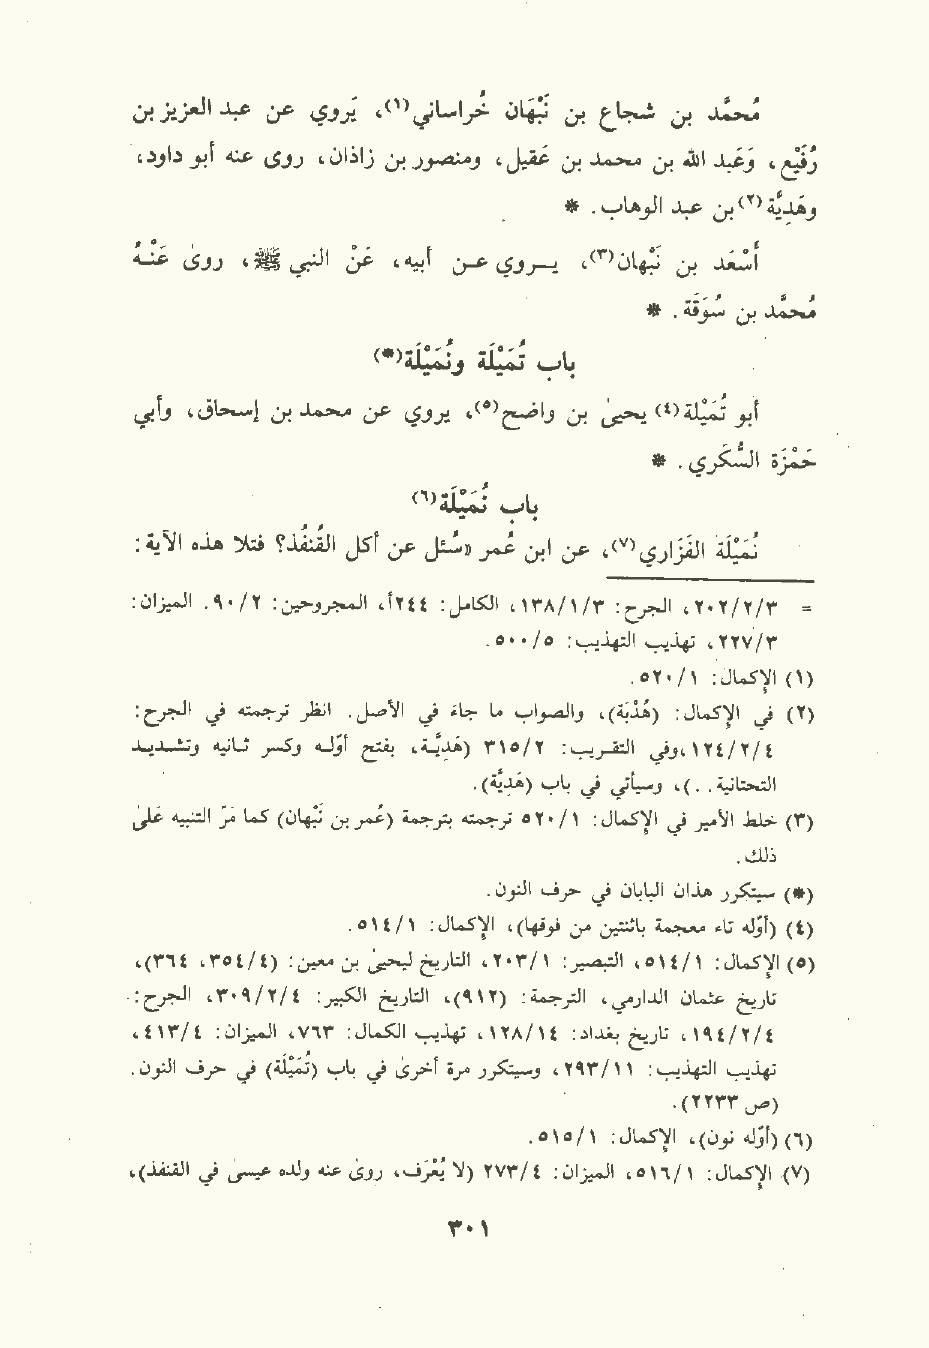 مُحمَّد بن شجاع بن نَبْهَان خُراساني(١)، يَروي عن عبد العزيز بن
رُفَيْع، وَعبد الله بن محمد بن عَقيل، ومنصور بن زاذان، روى عنه أبو داود،
وهَدِيَّة(٢) بن عبد الوهاب. *
أَسْعَد بن نَبْهان(٣)، يـروي عـن أبيه، عَنْ النبي ﷺ، روىٰ عَنْـهُ
مُحمَّد بن سُوَقَة. *
باب تُمَيْلَة ونُمَيْلَة(*)
أبو تُمَيْلَة(٤) يحيىٰ بن واضح(٥)، يروي عن محمد بن إسحاق، وأبي
حَمْزَة السُّكَري. *
باب نُمَيْلَة(٦)
نُمَيْلَة الفَزَاري(٧)، عن ابن عُمر «سُئل عن أكل القُنفُذ؟ فتلا هذه الآية:
= ٢٠٢/٢/٣، الجرح: ١٣٨/١/٣، الكامل: ٢٤٤أ، المجروحين: ٩٠/٢. الميزان:
٢٢٧/٣، تهذيب التهذيب: ٥٠٠/٥.
(١) الإكمال: ٥٢٠/١.
(٢) في الإكمال: (هُدْبَة)، والصواب ما جاء في الأصل. انظر ترجمته في الجرح:
١٢٤/٢/٤، وفي التقـريب: ٣١٥/٢ (هَدِيَّـة، بفتح أوّلـه وكسر ثـانيه وتشـديـد
التحتانية. .)، وسيأتي في باب (هَدِيَّة).
(٣) خلط الأمير في الإكمال: ٥٢٠/١ ترجمته بترجمة (عُمر بن نَبْهان) كما مَرَّ التنبيه عَلىٰ
ذلك.
(*) سيتكرر هذان البابان في حرف النون.
(٤) (أوّله تاء معجمة باثنتين من فوقها)، الإكمال: ٥١٤/١.
(٥) الإكمال: ٥١٤/١، التبصير: ٢٠٣/١، التاريخ ليحيىٰ بن معين: (٣٥٤/٤، ٣٦٤)،
تاريخ عثمان الدارمي، الترجمة: (٩١٢)، التاريخ الكبير: ٣٠٩/٢/٤، الجرح:
١٩٤/٢/٤، تاريخ بغداد: ١٢٨/١٤، تهذيب الكمال: ٧٦٣، الميزان: ٤١٣/٤،
تهذيب التهذيب: ٢٩٣/١١، وسيتكرر مرة أخرىٰ في باب (تُمَيْلَة) في حرف النون.
(ص ٢٢٣٣).
(٦) (أوّله نون)، الإكمال: ٥١٥/١.
(٧) الإكمال: ٥١٦/١، الميزان: ٢٧٣/٤ (لا يُعْرَف، روىٰ عنه ولده عيسىٰ في القنفذ)،
٣٠١